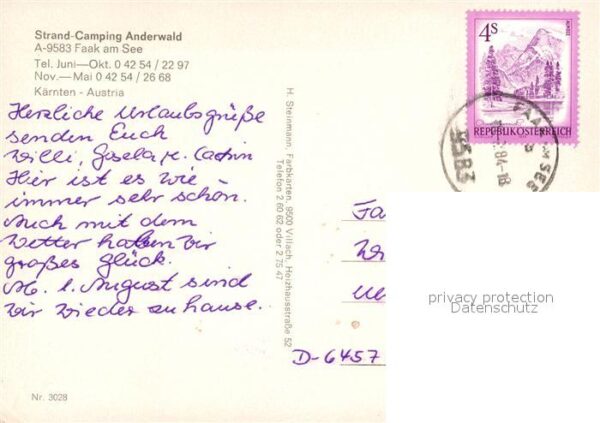 Strand-Camping Anderwald
A-9583 Faak am See
Tel. Juni—Okt. 0 42 54 / 22 97
Nov.—Mai 0 42 54 / 26 68
Kärnten - Austria
Herzliche Urlaubsgrüße
senden Euch
Willi, Gisela u. Catrin
Hier ist es wie
immer sehr schön.
Auch mit dem
Wetter haben wir
großes Glück.
Ab 1. August sind
wir wieder zuhause.
Nr. 3028
H. Steinmann, Farbkarten, 9500 Villach, Holzhausstraße 52
Telefon 2 60 62 oder 2 75 47
4S
ALMSEE
REPUBLIK ÖSTERREICH
FAAK AM SEE
84-18
9583
Fa
D-6457
privacy protection
Datenschutz